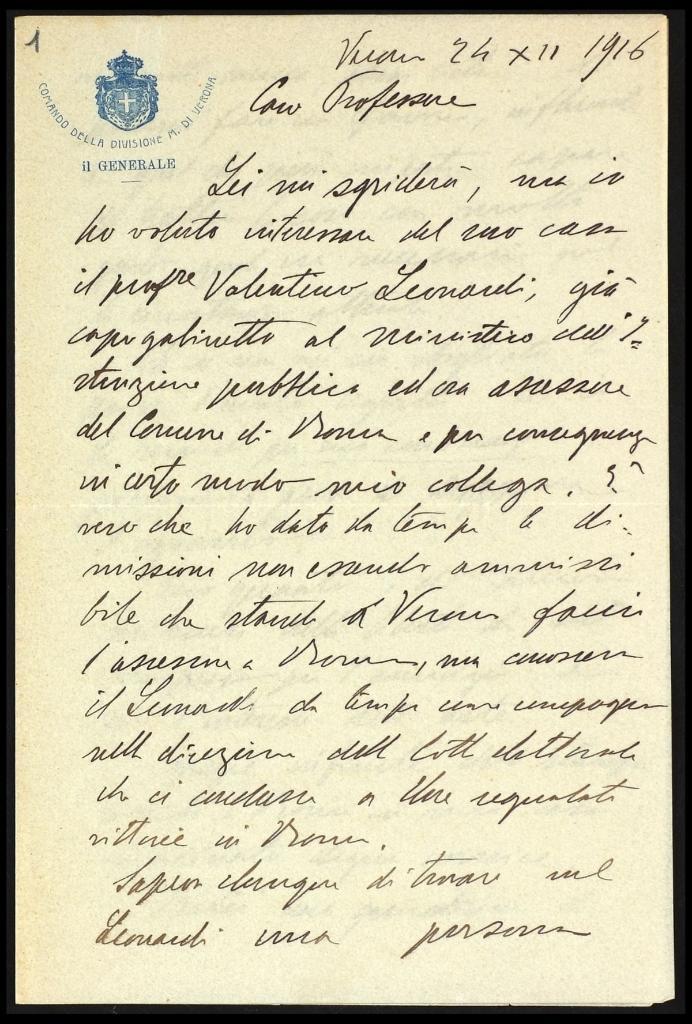 1
COMANDO DELLA DIVISIONE M. DI VERONA
il GENERALE
Verona 24 XII 1916
Caro Professore
Lei mi sgriderà, ma io
ho voluto interessare del suo caso
il profre Valentino Leonardi, già
capogabinetto al ministero dell'I=
struzione pubblica ed ora assessore
del Comune di Roma e per conseguenza
in certo modo mio collega. È
vero che ho dato da tempo le di=
missioni non essendo ammissi
bile che stando a Verona faccia
l'assessore a Roma, ma conoscevo
il Leonardi da tempo come compagno
nella direzione della lotta elettorale
che ci condusse a due segnalate
vittorie in Roma.
Sapevo dunque di trovare nel
Leonardi una persona